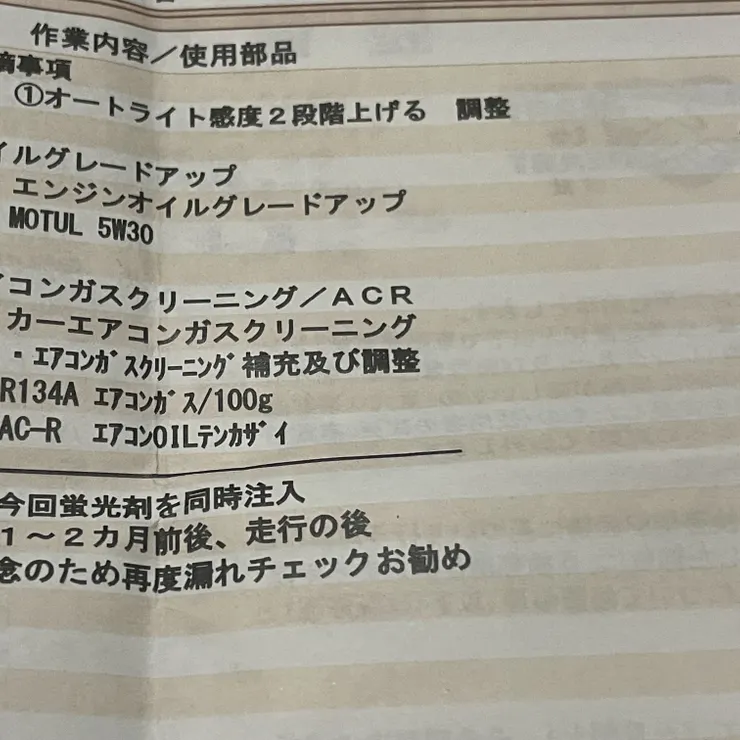 作業内容/使用部品
摘事項
①オートライト感度2段階上げる 調整
イルグレードアップ
エンジンオイルグレードアップ
MOTUL 5W30
コンガスクリーニング/ACR
カーエアコンガスクリーニング
・エアコンガスクリーニング補充及び調整
R134A エアコンガス/100g
AC-R エアコンOILテンカザイ
今回蛍光剤を同時注入
1~2カ月前後、走行の後
念のため再度漏れチェックお勧め